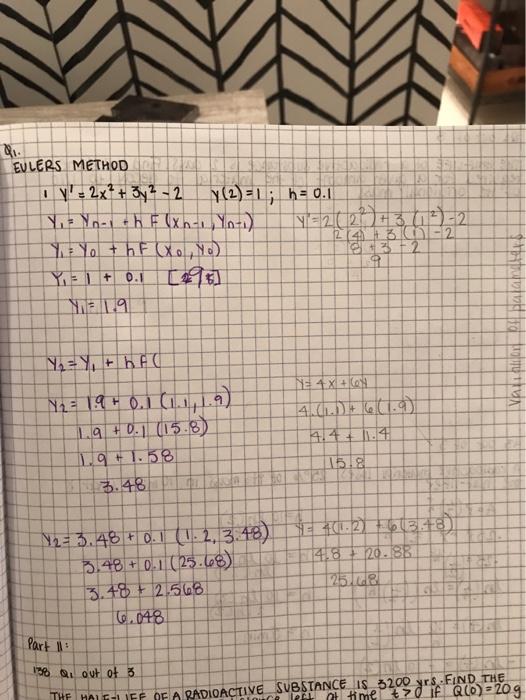 Q1.
EULERS METHOD
1 y' = 2x² + 3y² - 2 y(2)=1; h = 0.1
Y₁ = Yn-1 + h F (Xn-1, Yn-1) Y' = 2(2²) + 3(1²) - 2
2(4) + 3(1) - 2
Y₁ = Y₀ + hF (X₀, Y₀) 8 + 3 - 2
9
Y₁ = 1 + 0.1
Y₁ = 1.9
Y₂ = Y₁ + hF(
Y = 4x + 6y
Y₂ = 1.9 + 0.1 (1.1, 1.9) 4(1.1) + 6(1.9)
1.9 + 0.1 (15.8) 4.4 + 11.4
1.9 + 1.58 15.8
3.48
Y₂ = 3.48 + 0.1 (1.2, 3.48) Y = 4(1.2) + 6(3.48)
3.48 + 0.1 (25.68) 4.8 + 20.88
3.48 + 2.568 25.68
6.048
Part II:
138 Q1 out of 3
THE HALF-LIFE OF A RADIOACTIVE SUBSTANCE IS 3200 yrs. FIND THE
left at time t>0 if Q(0)=20g
Variation of parameters